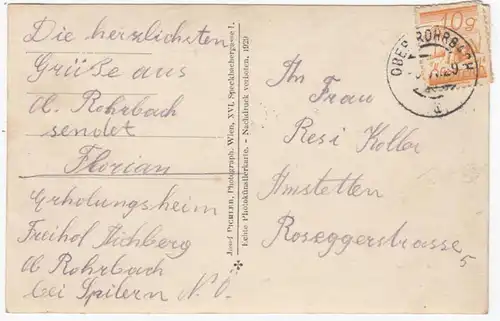 Die herzlichsten
Grüße aus
Ob. Rohrbach
sendet
Florian
Erholungsheim
Freihof Aichberg
Ob Rohrbach
bei Spillern N. Ö.
Josef PICHLER, Photograph. Wien, XVI. Speckbachergasse 1.
Echte Photokünstlerkarte. - Nachdruck verboten, 1929
10g
OBER ROHRBACH
29
a
An Frau
Resi Koller
Amstetten
Roseggerstrasse
5